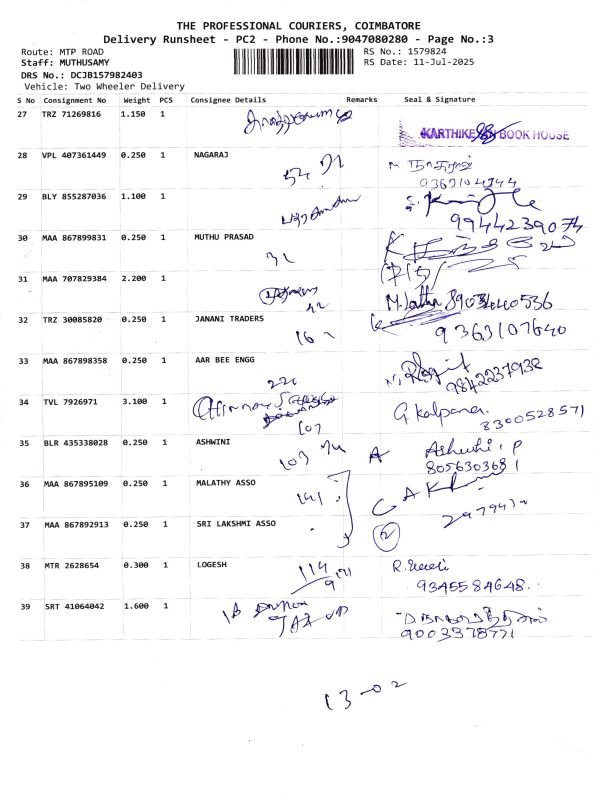 THE PROFESSIONAL COURIERS, COIMBATORE
Delivery Runsheet - PC2 - Phone No.:9047080280 - Page No.:3
Route: MTP ROAD
RS No.: 1579824
Staff: MUTHUSAMY
RS Date: 11-Jul-2025
DRS No.: DCJB157982403
Vehicle: Two Wheeler Delivery
S No Consignment No Weight PCS Consignee Details Remarks Seal & Signature
27 TRZ 71269816 1.150 1
KARTHIKE BOOK HOUSE
28 VPL 407361449 0.250 1 NAGARAJ
9363104944
29 BLY 855287036 1.100 1
9944239074
30 MAA 867899831 0.250 1 MUTHU PRASAD
31 MAA 707829384 2.200 1
M. Latha 8903440536
32 TRZ 30085820 0.250 1 JANANI TRADERS
9363107640
33 MAA 867898358 0.250 1 AAR BEE ENGG
220
9842237932
34 TVL 7926971 3.100 1
107
G Kalpana.
8300528571
35 BLR 435338028 0.250 1 ASHWINI
109
A
8056303681
36 MAA 867895109 0.250 1 MALATHY ASSO
37 MAA 867892913 0.250 1 SRI LAKSHMI ASSO
2
38 MTR 2628654 0.300 1 LOGESH
114
9345584648
39 SRT 41064042 1.600 1
9003378771
13-02